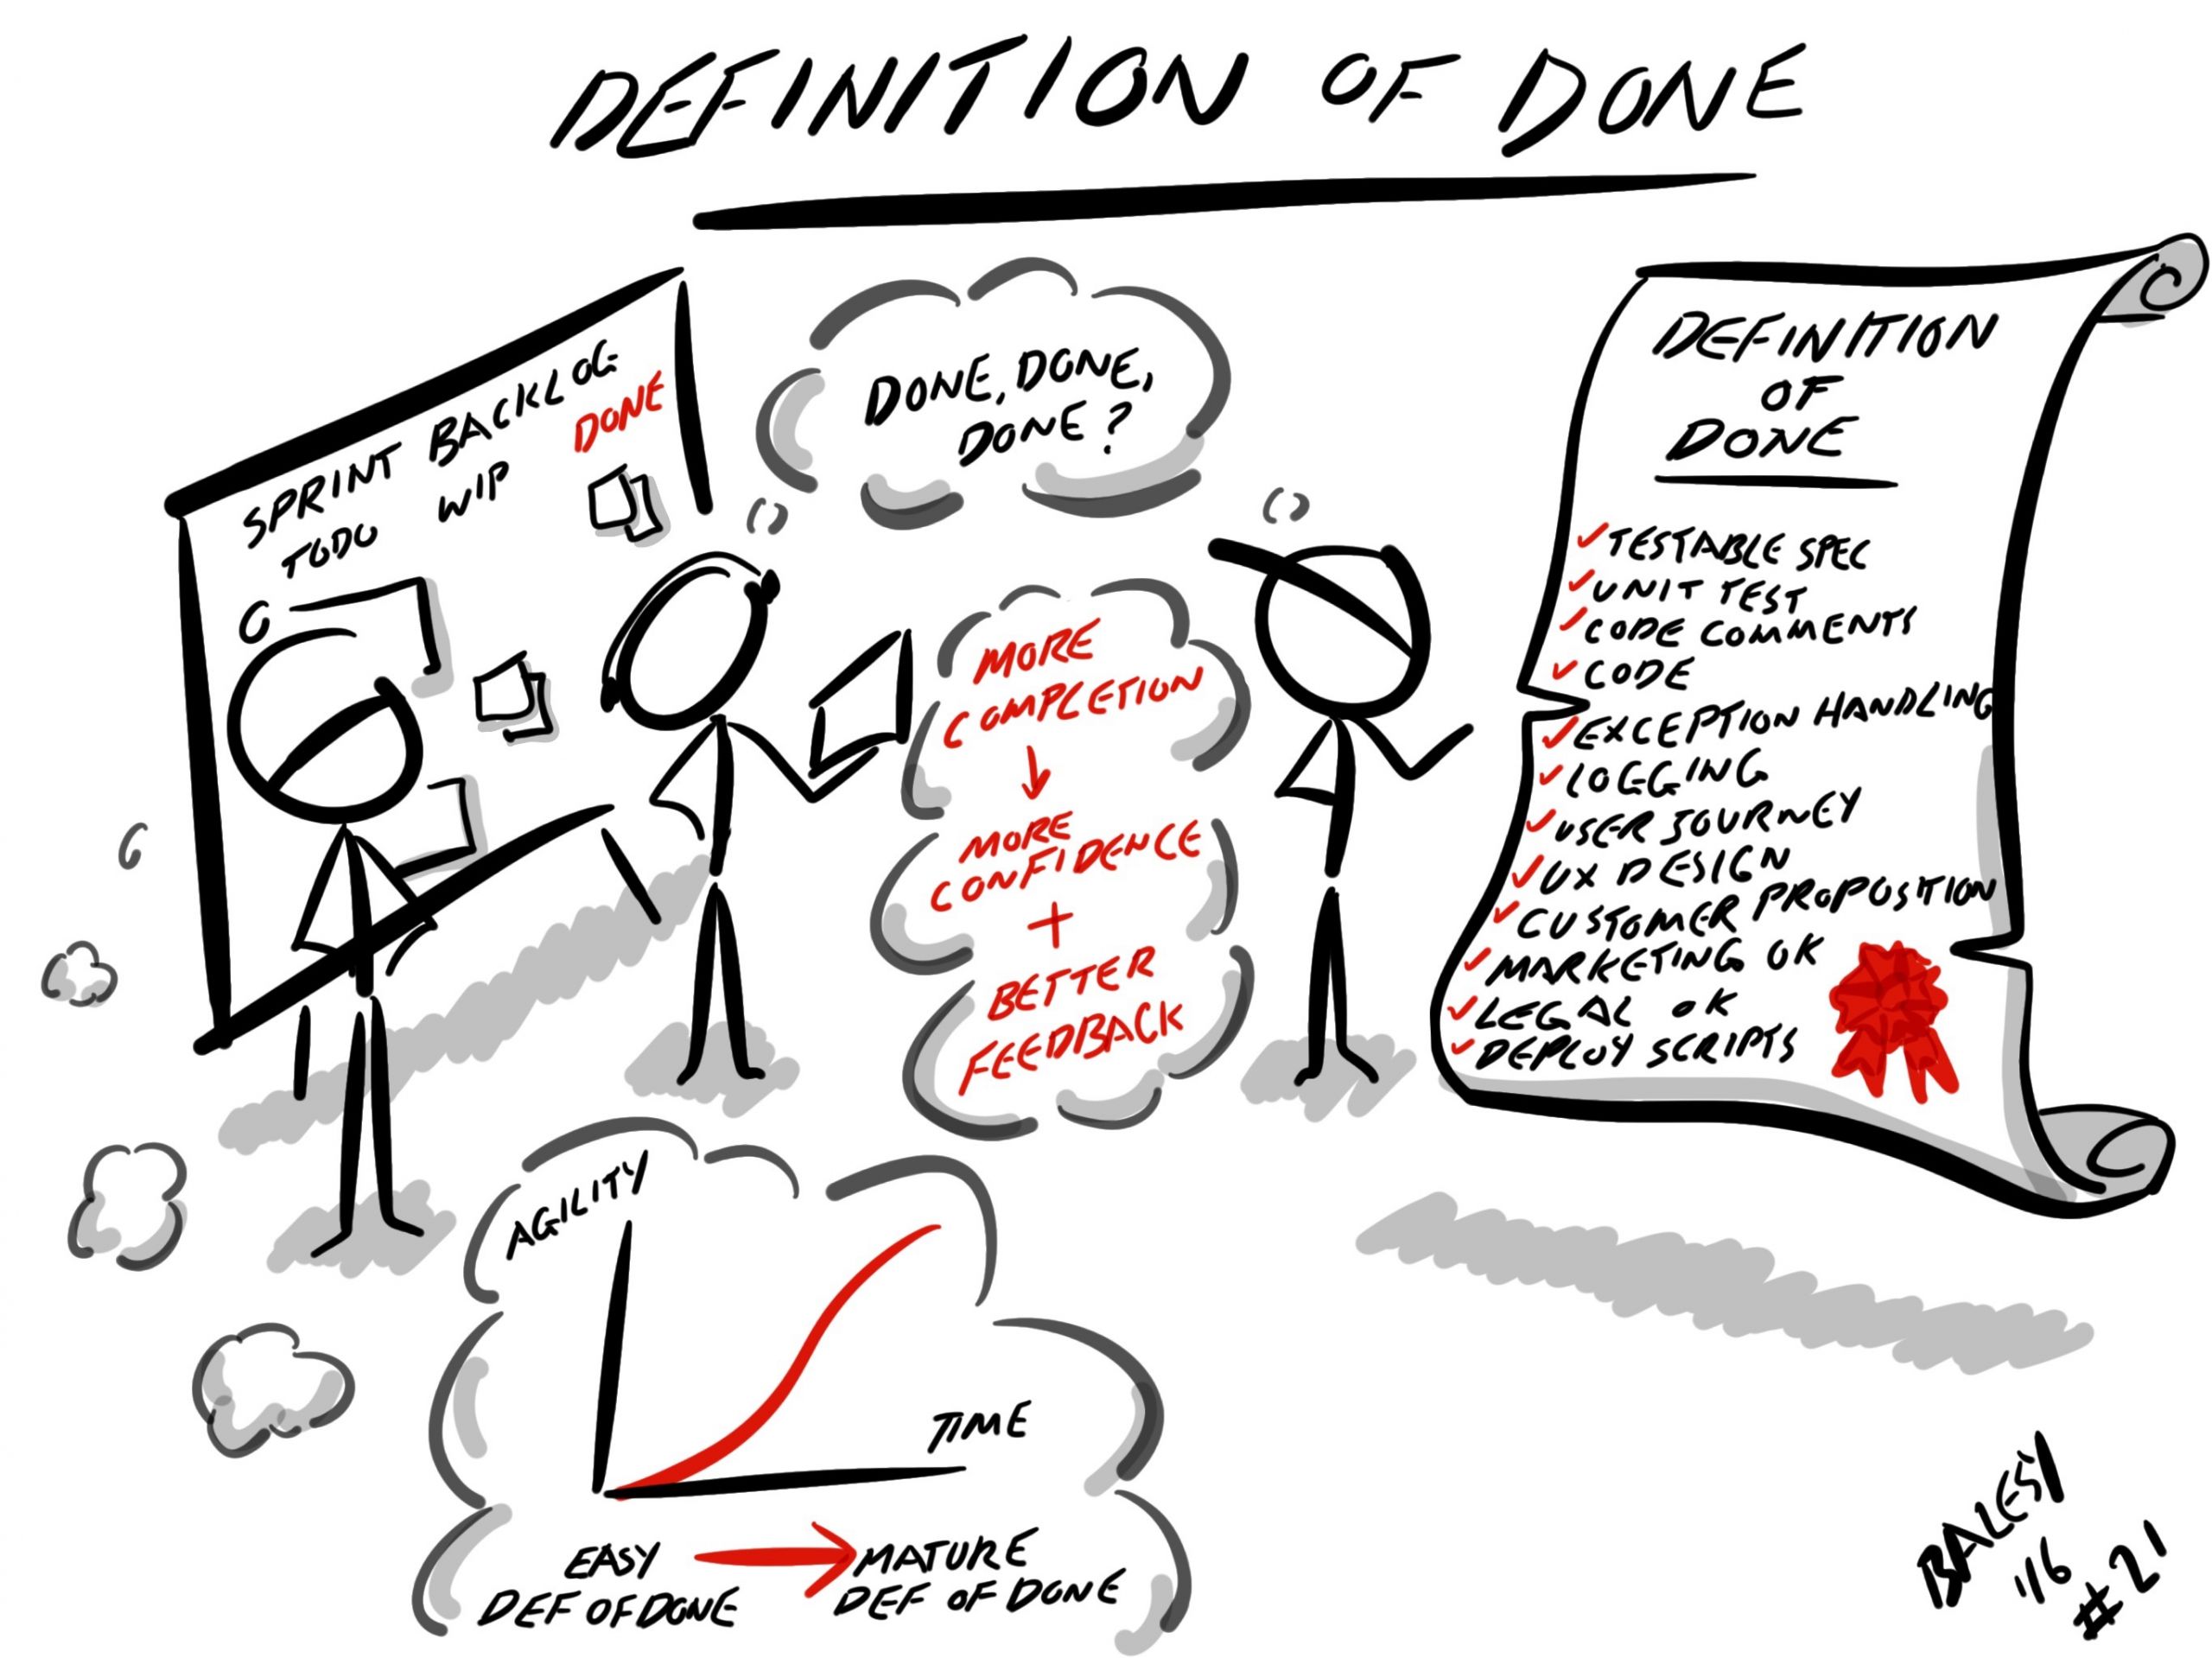 DEFINITION OF DONE
SPRINT BACKLOG
TODO WIP DONE
DONE, DONE,
DONE?
MORE
COMPLETION
↓
MORE
CONFIDENCE
+
BETTER
FEEDBACK
DEFINITION
OF
DONE
✓TESTABLE SPEC
✓UNIT TEST
✓CODE COMMENTS
✓CODE
✓EXCEPTION HANDLING
✓LOGGING
✓USER JOURNEY
✓UX DESIGN
✓CUSTOMER PROPOSITION
✓MARKETING OK
✓LEGAL OK
✓DEPLOY SCRIPTS
AGILITY
TIME
EASY → MATURE
DEF OF DONE DEF OF DONE
'16
#21